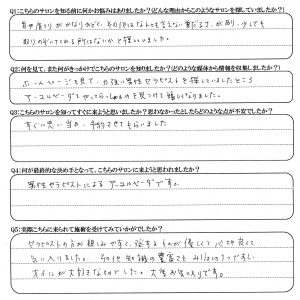 Q1:こちらのサロンを知る前に何かお悩みはありましたか？どんな理由からこのようなサロンを探していましたか？
首や肩こりがかなりひどく、その他はなんとも言えない重だるさがあり、少しでも
取りのぞいてくれる所はないかと探していました。
Q2:何を見て、また何がきっかけでこちらのサロンを知りましたか？(どのような媒体から情報を収集しましたか？)
ホームページを見て、力強い男性セラピストを探していましたところ
アーユルベーダもやってらっしゃるのを見つけて嬉しくなりました。
Q3:こちらのサロンを知ってすぐに来ようと思いましたか？思わなかったとしたらどのような点が不安でしたか？
すぐに思い当り、予約させてもらいました
Q4:何が最終的な決め手となって、こちらのサロンに来ようと思われましたか？
男性セラピストによるアーユルベーダです。
Q5:実際こちらに来られて施術を受けてみていかがでしたか？
セラピストの方が親しみやすく、話すものが優しくて心地良くて
気に入りました。その他知識の豊富さもみりょくですし、
オイルが大好きなのでした。大変お気に入りです。